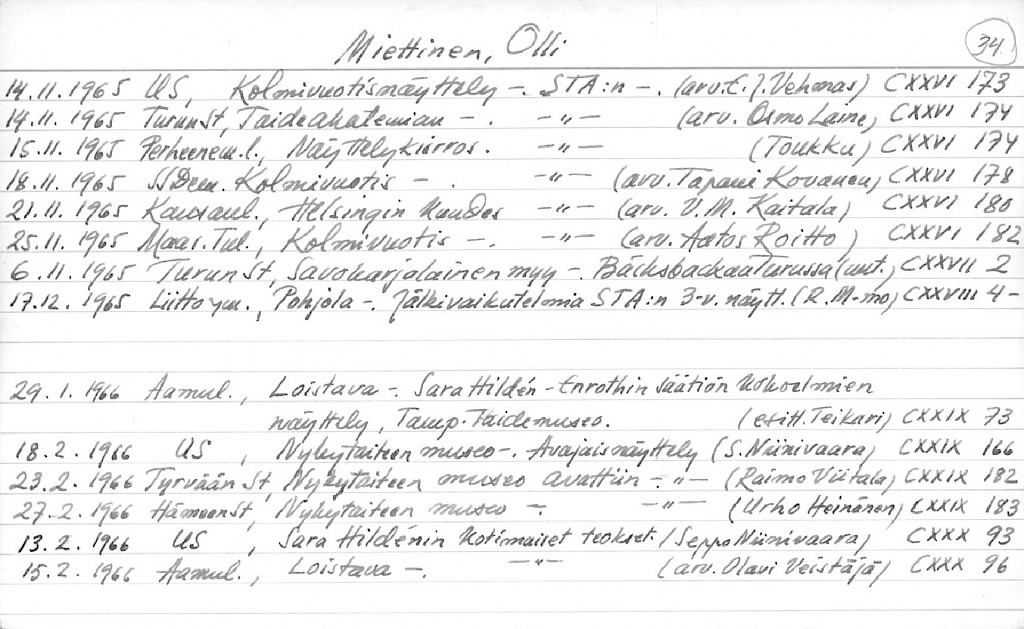 Miettinen, Olli
34
14.11.1965 US, Kolmivuotisnäyttely -. STA:n -. (arv. E.J. Vehmas) CXXVI 173
14.11.1965 Turun St, Taideakatemian -. -"- (arv. Osmo Laine) CXXVI 174
15.11.1965 Perheenem.l., Näyttelykierros. -"- (Toukku) CXXVI 174
18.11.1965 SSDem. Kolmivuotis -. -"- (arv. Tapani Kovanen) CXXVI 178
21.11.1965 Kansanl., Helsingin kuudes -"- (arv. V.M. Kaitala) CXXVI 180
25.11.1965 Maas.Tul., Kolmivuotis -. -"- (arv. Aatos Roitto) CXXVI 182
6.11.1965 Turun St, Savokarjalainen myy -. Bäcksbackaa Turussa (uut.) CXXVII 2
17.12.1965 Liitto ym., Pohjola -. Jälkivaikutelmia STA:n 3-v. näytt. (R. M-mo) CXXVIII 4-
29.1.1966 Aamul., Loistava -. Sara Hildén - Enrothin säätiön kokoelmien
näyttely, Tamp. Taidemuseo. (esitt. Teikari) CXXIX 73
18.2.1966 US, Nykytaiteen museo -. Avajaisnäyttely (S. Niinivaara) CXXIX 166
23.2.1966 Tyrvään St, Nykytaiteen museo avattiin -. -"- (Raimo Viitala) CXXIX 182
27.2.1966 Hämeen St, Nykytaiteen museo -. -"- (Urho Heinänen) CXXIX 183
13.2.1966 US, Sara Hildénin kotimaiset teokset. (Seppo Niinivaara) CXXX 93
15.2.1966 Aamul., Loistava -. -"- (arv. Olavi Veistäjä) CXXX 96